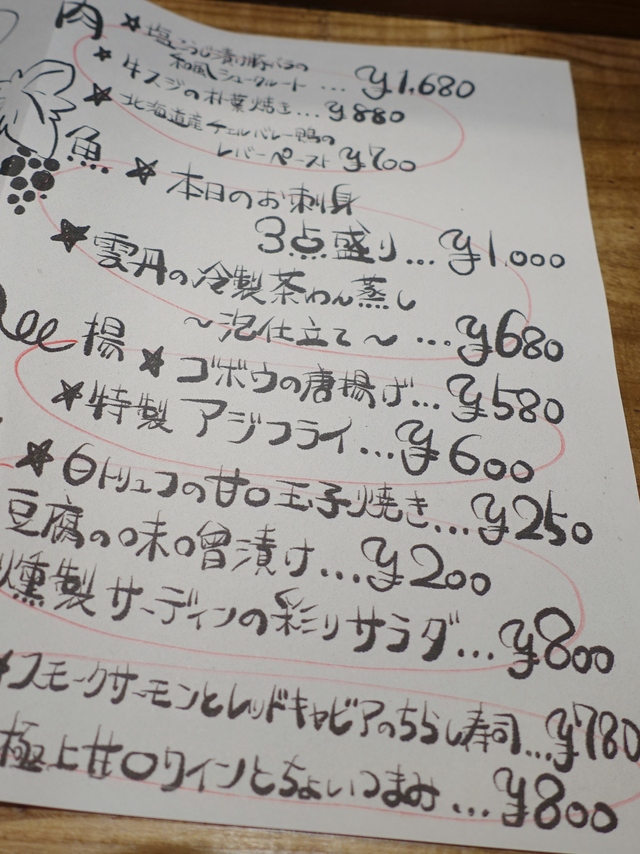 肉 ★塩こうじ漬け豚バラの
和風シュークルート…¥1,680
★牛スジの朴葉焼き…¥880
★北海道産チェルバレー鴨の
レバーペースト ¥700
魚 ★本日のお刺身
3点盛り…¥1,000
★雲丹の冷製茶わん蒸し
〜泡仕立て〜…¥680
揚 ★ゴボウの唐揚げ…¥580
★特製アジフライ…¥600
★白トリュフの甘口玉子焼き…¥250
豆腐の味噌漬け…¥200
燻製サーディンの彩りサラダ…¥800
★スモークサーモンとレッドキャビアのちらし寿司…¥780
極上甘口ワインとちょいつまみ…¥800